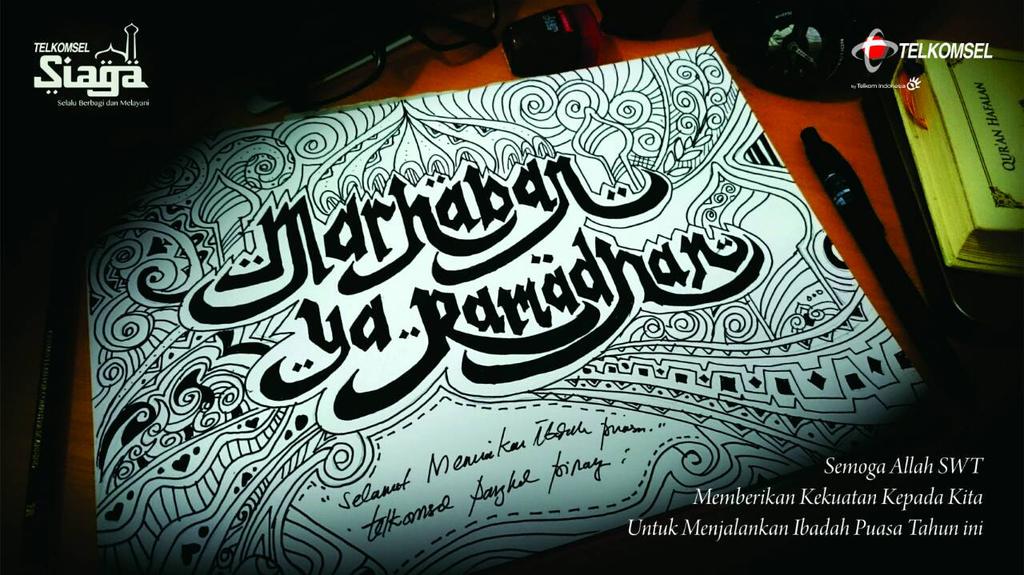 TELKOMSEL
Siaga
Selalu Berbagi dan Melayani
TELKOMSEL
by Telkom Indonesia
QUR'AN HAFALAN
Marhaban
ya Ramadhan
"Selamat Menunaikan Ibadah puasa."
telkomsel pangkal pinang
Semoga Allah SWT
Memberikan Kekuatan Kepada Kita
Untuk Menjalankan Ibadah Puasa Tahun ini